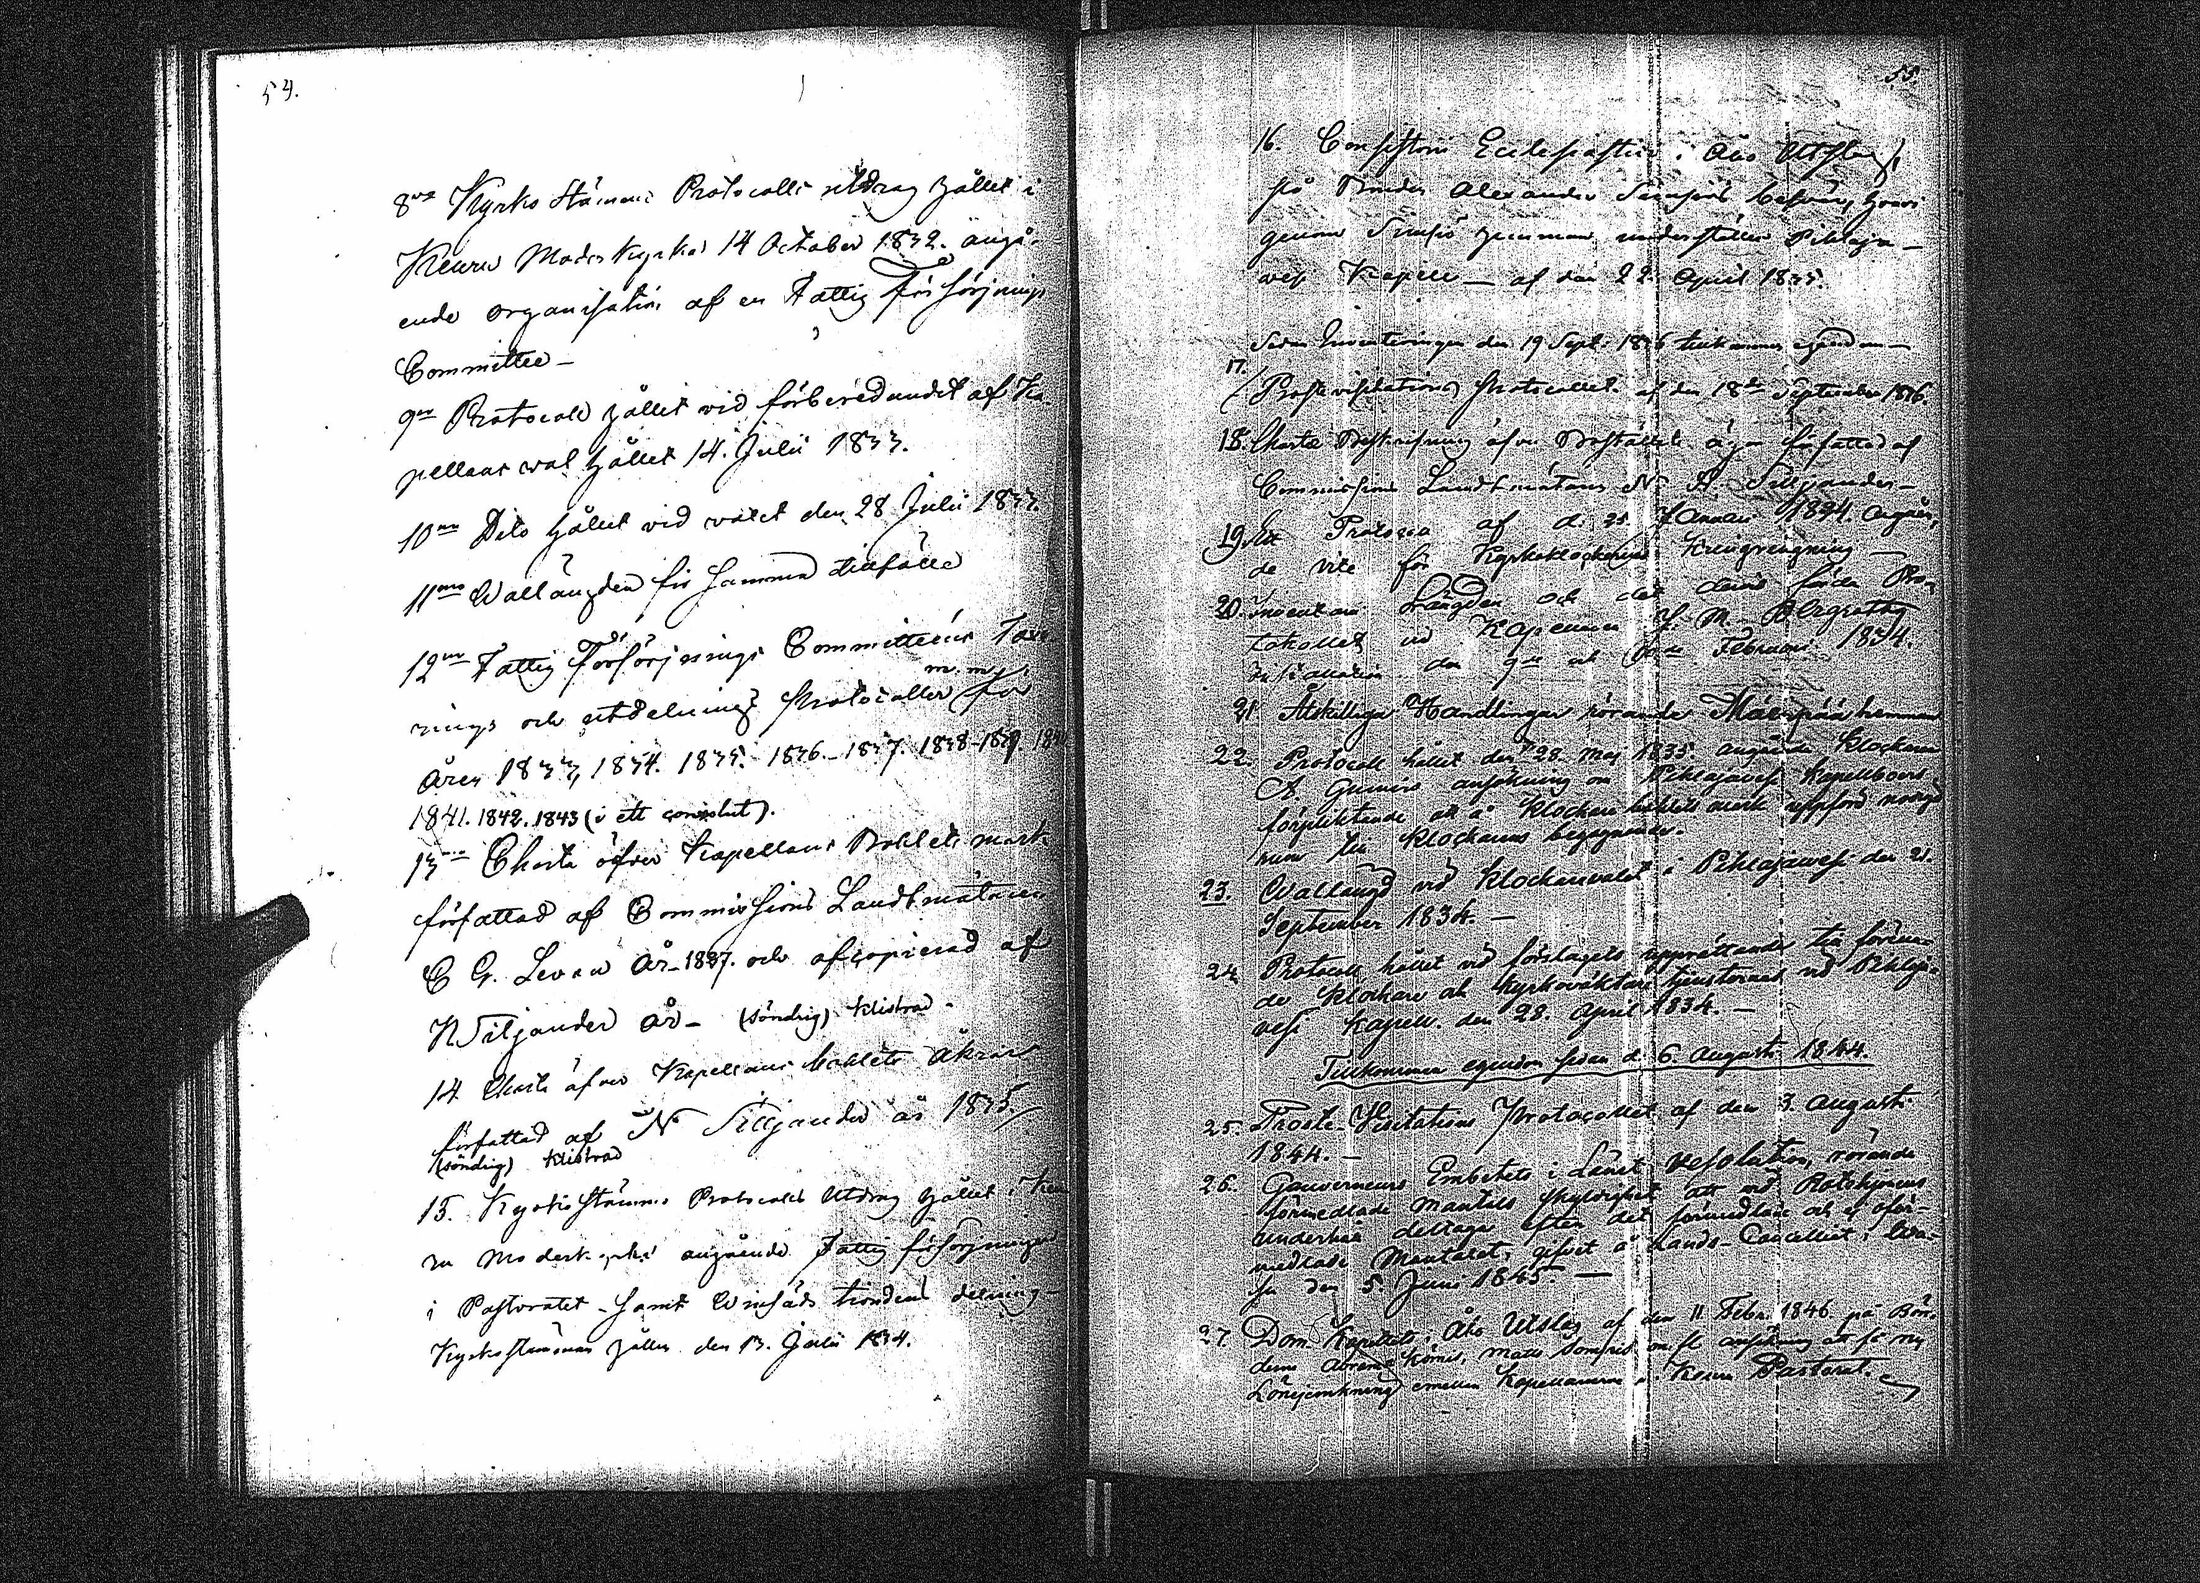 54.
8de Kyrko Stämme Protocolls utdrag hållet i
Keuru Moderkyrka 14 October 1832. angå-
ende organisation af en Fattig Försörjnings
Committee —
9de Protocoll hållet vid förberedandet af Ka
pellans val hållet 14. Julii 1833.
10de Dito hållet vid valet den 28 Julii 1833.
11mo Wallängden för samma tillfälle
12mo Fattig Försörjnings Committeens Taxe-
m. m.
rings och utdelnings Protocoller för
Åren 1833, 1834. 1835. 1836. 1837. 1838-1839. 1840
1841. 1842. 1843 (i ett convolut).
13de Charta öfver Kapellans Bohlets mark
författad af Commissions Landtmätaren
C G. Levan År 1827. och afcopierad af
N Siljander År — (söndrig) klistrad.
14 Charta öfver Kapellans bohlets åkrar
författad af N Silljander år 1835.
(söndrig) klistrad
15. Kyrko Stämme Protocolls Utdrag hållet i Keu
ru Moderkyrka angående Fattig försörjningen
i Pastoratet samt delning
Kyrkostämman hållen den 13. Julii 1834.
55.
16. Consistorii Ecclesiastici i Åbo Utslag,
på Bonden Alexander besvär, hvari
genom hemman underställes Pihlaja—
vesi Kapell — af den 22 April 1835.
Sedan Inventeringen den 19 Sept. 1836 tillkommer
17. Prostevisitations Protocollet af den 18de September 1836.
18. Charta Beskrifning öfver Boställets ägor författad af
Commissions Landtmätare N Silljander—
19. Ett Protocoll af d. 25 Januari 1834. angåen-
de vite för Kyrkoklockornas kringringning —
20. Inventarii Längden och det dervid förda Pro-
tokollet vid Kapellanen J. M.
Installation den 9de och 10de Februari 1834.
21 Åtskilliga Handlingar rörande hemman
22. Protocoll hållet den 28. Maj 1835 angående Klockaren
A. ansökning om Pihlajavesi Kapellboers
förpliktande att å Klockare bohlets mark uppföra
rum till Klockarens begagnande.
23. Vallängd vid klockarevalet i Pihlajavesi den 21.
September 1834. —
24 Protocoll hållet vid förslagets upprättande till förena-
de Klockare och Kyrkoväktare tjensterna vid Pihlaja-
vesi Kapell. den 28. April 1834. —
Tillkommer sedan d. 6. Augusti 1844.
25 Proste-Visitations Protocollet af den 3. Augusti
1844. —
26. Gouverneurs Embetets i Länet resolution, rörande
förmedlade Mantals skyldighet att vid
underhåll deltaga efter det förmedlade och ej oför-
medlade Mantalet, gifvet å Lands-Cancelliet i Wa-
sa den 5. Juni 1845. —
27. Dom Kapitlets i Åbo Utslag af den 11 Febr. 1846 på Bön-
dern ansökning att få ny
Lönejemkning emellan Kapellanerne i Keuru Pastorat.